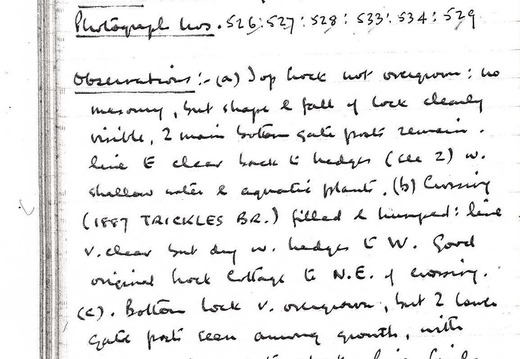 Photograph Nos. 526: 527: 528: 533: 534: 529
Observations:- (a) Top lock not overgrown: no
masonry, but shape & fall of lock clearly
visible, 2 main bottom gate posts remain.
Line E clear back to hedges (see 2) w.
shallow water & aquatic plants. (b) Crossing
(1887 TRICKLES BR.) filled & humped: line
v. clear but dry w. hedges to W. Good
original Lock Cottage to N.E. of crossing.
(c). Bottom Lock v. overgrown, but 2 lower
gate posts seen among growth, with